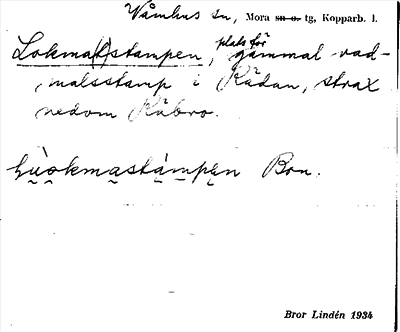 Våmhus sn, Mora sn o. tg, Kopparb. l.
Lokma(t)stampen, plats för gammal vad-
malsstamp i Rådan, strax
nedom Råbro.
lùokmastàmpen Bon.
Bror Lindén 1934